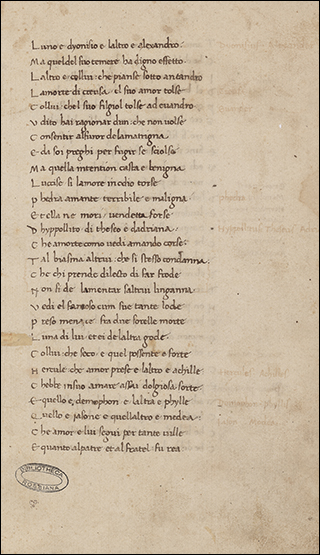 L uno e dyonisio e laltro e alexandro
M a quel del suo temere ha digno effetto
L altro e collui che pianse sotto antandro
L a morte di creusa el suo amor tolse
C ollui chel suo figiol tolse ad euandro
V dito hai ragionar dun che non uolse
C onsentir al furor dela matrigna
E da soi preghi per fugir se sciolse
M a quella intention casta e benigna
L uccise si lamore in odio torse
P hedra amante terribile e maligna
E t ella ne mori uendetta forse
D hyppollito di theseo e dadriana
C he amorte como uedi amando corse
T al biasma altrui che si stesso condanna
C he chi prende dilecto di far frode
N on si de lamentar saltri linganna
V edi el famoso cum sue tante lode
P reso menare fra due sorelle morte
L una di lui et ei de laltra gode
C ollui che seco e quel possente e forte
H ercule che amor prese e laltro e achille
C hebbe in suo amare assai dolgiosa sorte
E quello e demophon e laltra e phylle
Q uello e jasone e quellaltro e medea
C he amor e lui segui per tante uille
E quanto alpatre et al fratel fu rea
BIBLIOTHECA
ROSSIANA